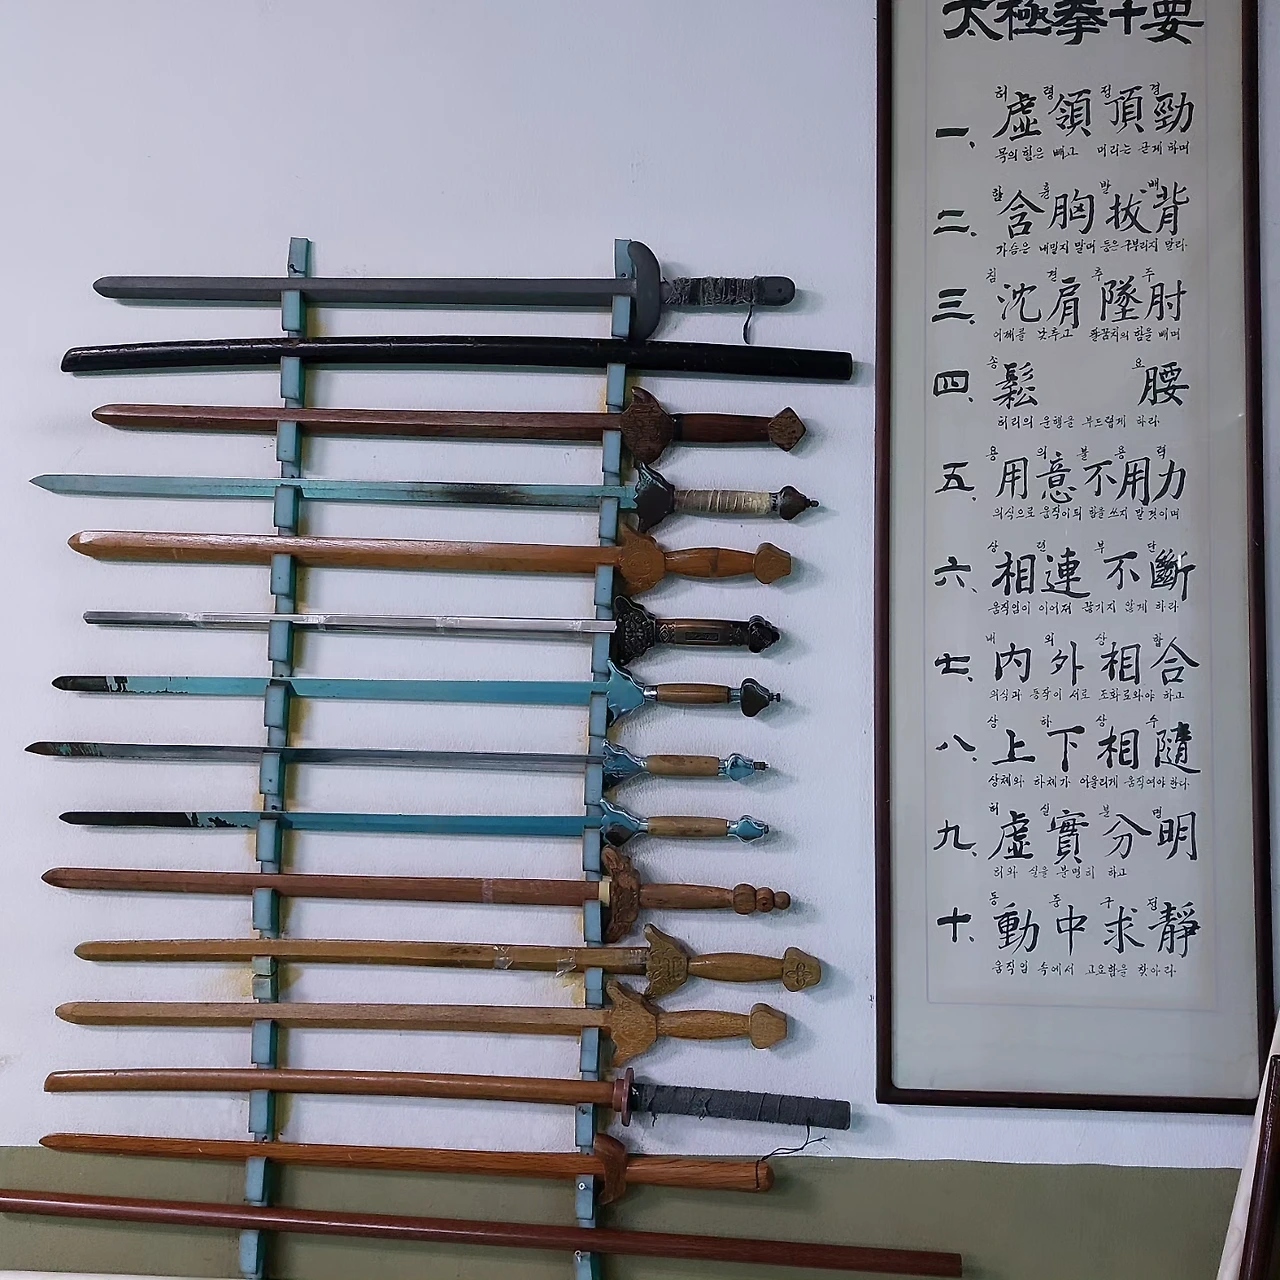 太極拳十要
허 령 정 경
一、虛領頂勁
목의 힘은 빼고 머리는 곧게 하며
함 흉 발 배
二、含胸拔背
가슴은 내밀지 말며 등은 구부리지 말라
침 견 추 주
三、沈肩墜肘
어깨를 낮추고 팔꿈치의 힘을 빼며
송 요
四、鬆 腰
허리의 운행을 부드럽게 하라
용 의 불 용 력
五、用意不用力
의식으로 움직이되 힘을 쓰지 말 것이며
상 련 부 단
六、相連不斷
움직임이 이어져 끊기지 않게 하라
내 외 상 합
七、內外相合
의식과 동작이 서로 조화로와야 하고
상 하 상 수
八、上下相隨
상체와 하체가 어울리게 움직여야 한다
허 실 분 명
九、虛實分明
허와 실을 분명히 하고
동 중 구 정
十、動中求靜
움직임 속에서 고요함을 찾아라